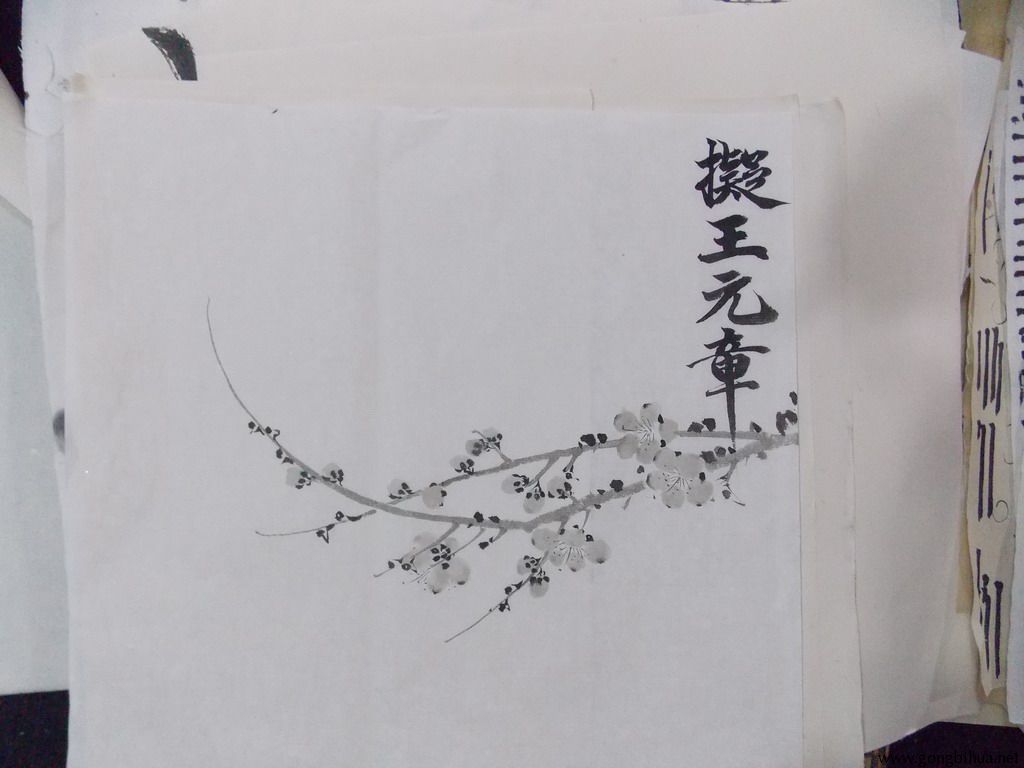 擬王元章
www.gongbihua.net